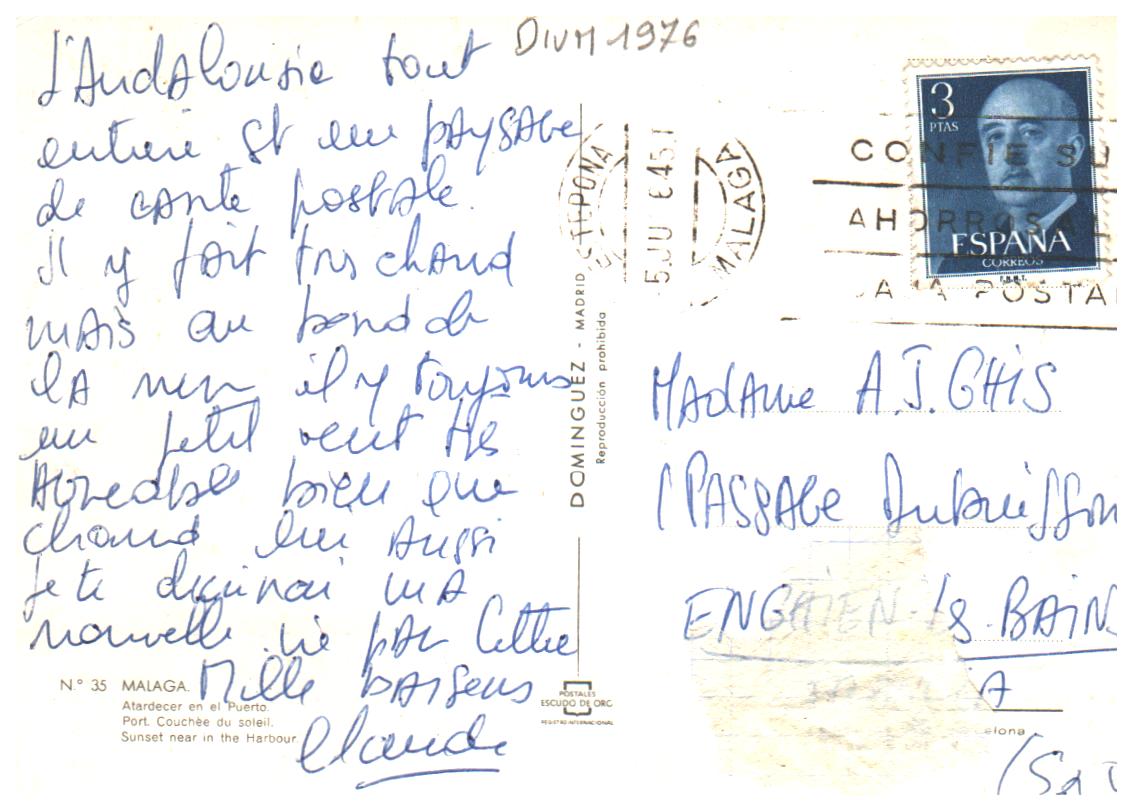 DIVM 1976
L'Andalousie tout
entière est un paysage
de carte postale.
Il y fait très chaud
mais au bord de
la mer il y toujours
un petit vent très
agréable bien que
chaud lui aussi
Je te décrirai ma
nouvelle vie par lettre
Mille baisers
Claude
N.º 35 MALAGA.
Atardecer en el Puerto.
Port. Couchèe du soleil.
Sunset near in the Harbour.
DOMINGUEZ - MADRID
Reproducción prohibida
POSTALES
ESCUDO DE ORO
REGISTRO INTERNACIONAL
ESTEPONA
MALAGA
3
PTAS
ESPAÑA
CORREOS
F.N.M.T.
CONFIE SU
AHORROS A L
CAJA POSTA
Madame A.J. GHIS
1 PASSAGE Dubuisson
ENGHIEN-ls-BAINS
A
elona